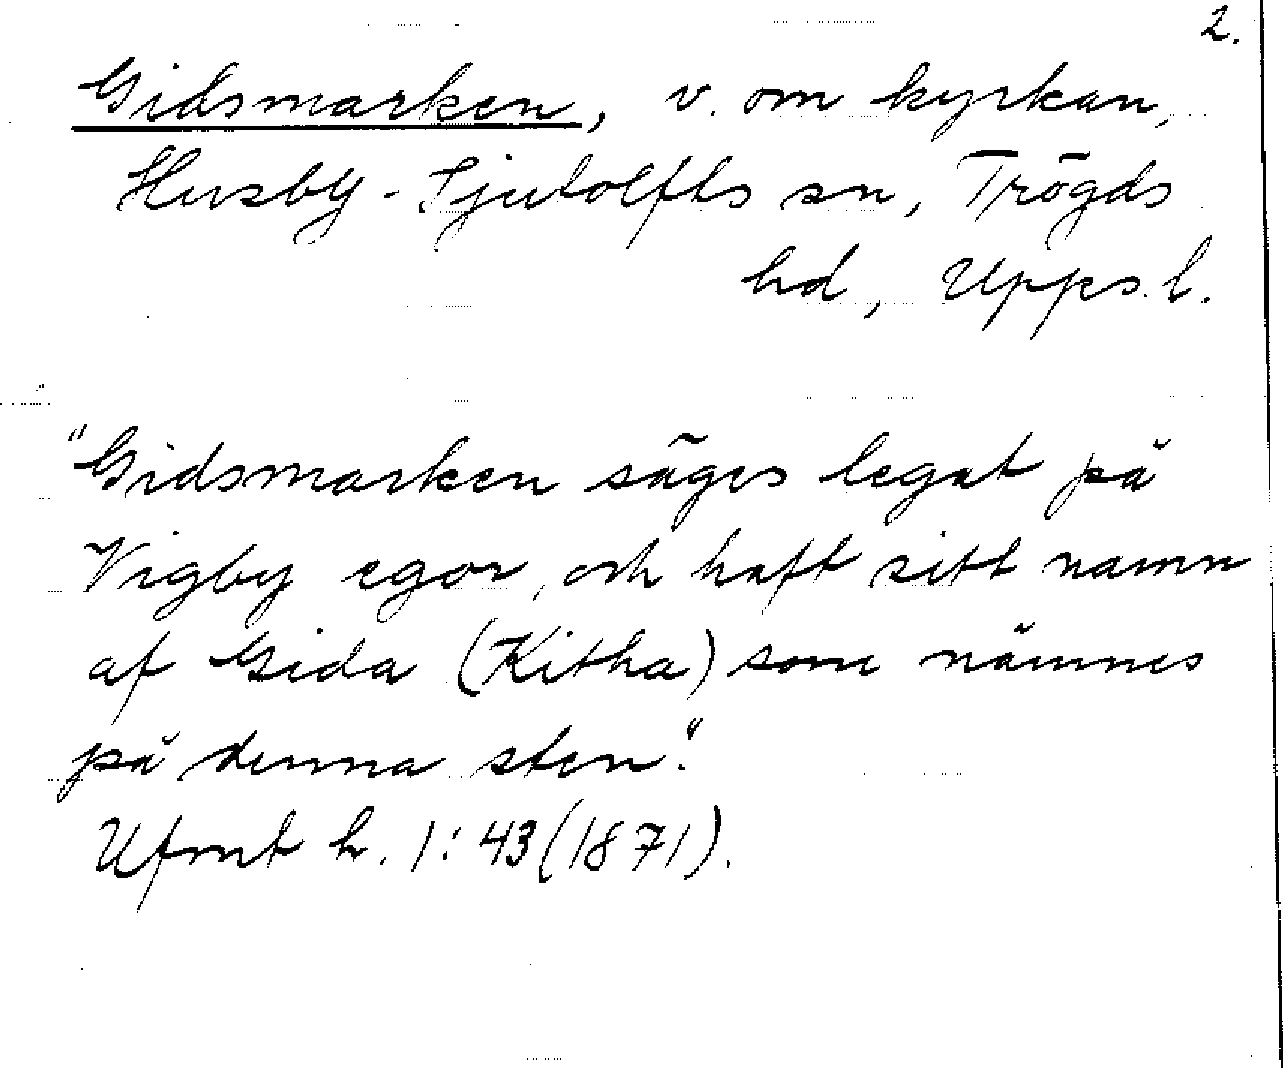 2.
Gidsmarken, v. om kyrkan,
Husby-Sjutolfts sn, Trögds
hd, Upps. l.
"Gidsmarken säges legat på
Vigby egor, och haft sitt namn
af Gida (Kitha) som nämnes
på denna sten."
Ufmt h. 1:43 (1871).